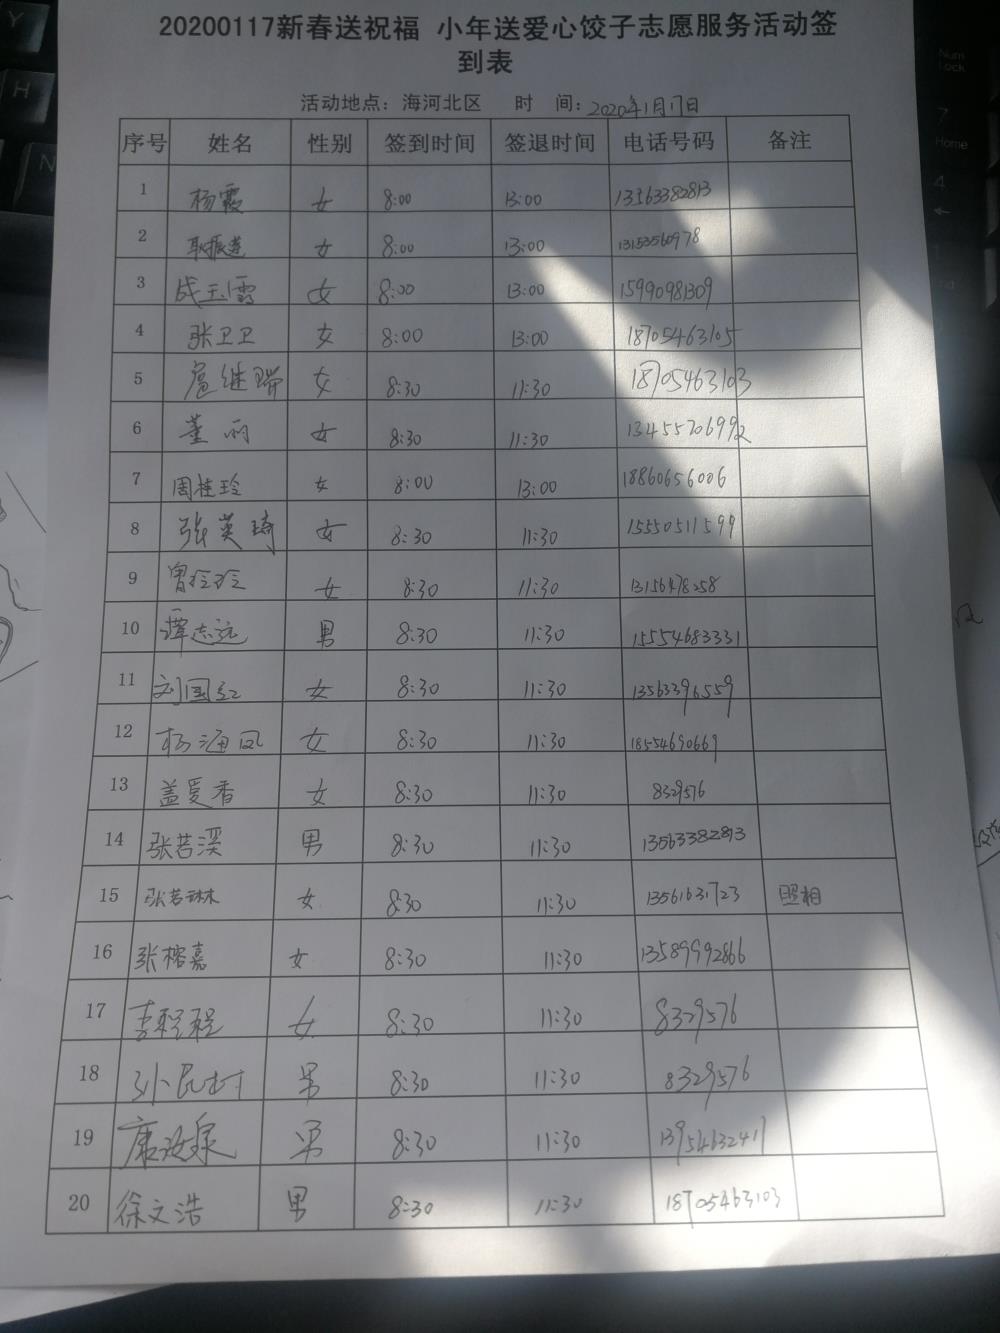 20200117新春送祝福 小年送爱心饺子志愿服务活动签
到表
活动地点：海河北区 时 间：2020年1月17日
序号 姓名 性别 签到时间 签退时间 电话号码 备注
1 杨霞 女 8:00 13:00 13563382813
2 耿振莲 女 8:00 13:00 13153560978
3 战玉霞 女 8:00 13:00 15990981309
4 张卫卫 女 8:00 13:00 18705463105
5 扈继瑞 女 8:30 11:30 18705463103
6 董丽 女 8:30 11:30 13455706992
7 周桂玲 女 8:00 13:00 18860656006
8 张英琦 女 8:30 11:30 15550511599
9 曾玲玲 女 8:30 11:30 13156478258
10 谭志远 男 8:30 11:30 15554683331
11 刘国红 女 8:30 11:30 13563396559
12 杨海凤 女 8:30 11:30 18554690669
13 盖爱香 女 8:30 11:30 8329576
14 张若溪 男 8:30 11:30 13563382813
15 张若琳 女 8:30 11:30 13561631723 照相
16 张榕嘉 女 8:30 11:30 13589992866
17 李程程 女 8:30 11:30 8329576
18 孙民村 男 8:30 11:30 8329576
19 康汝泉 男 8:30 11:30 13954632417
20 徐文浩 男 8:30 11:30 18705463103
Y
H
N
Num
Lock
7
Home
4